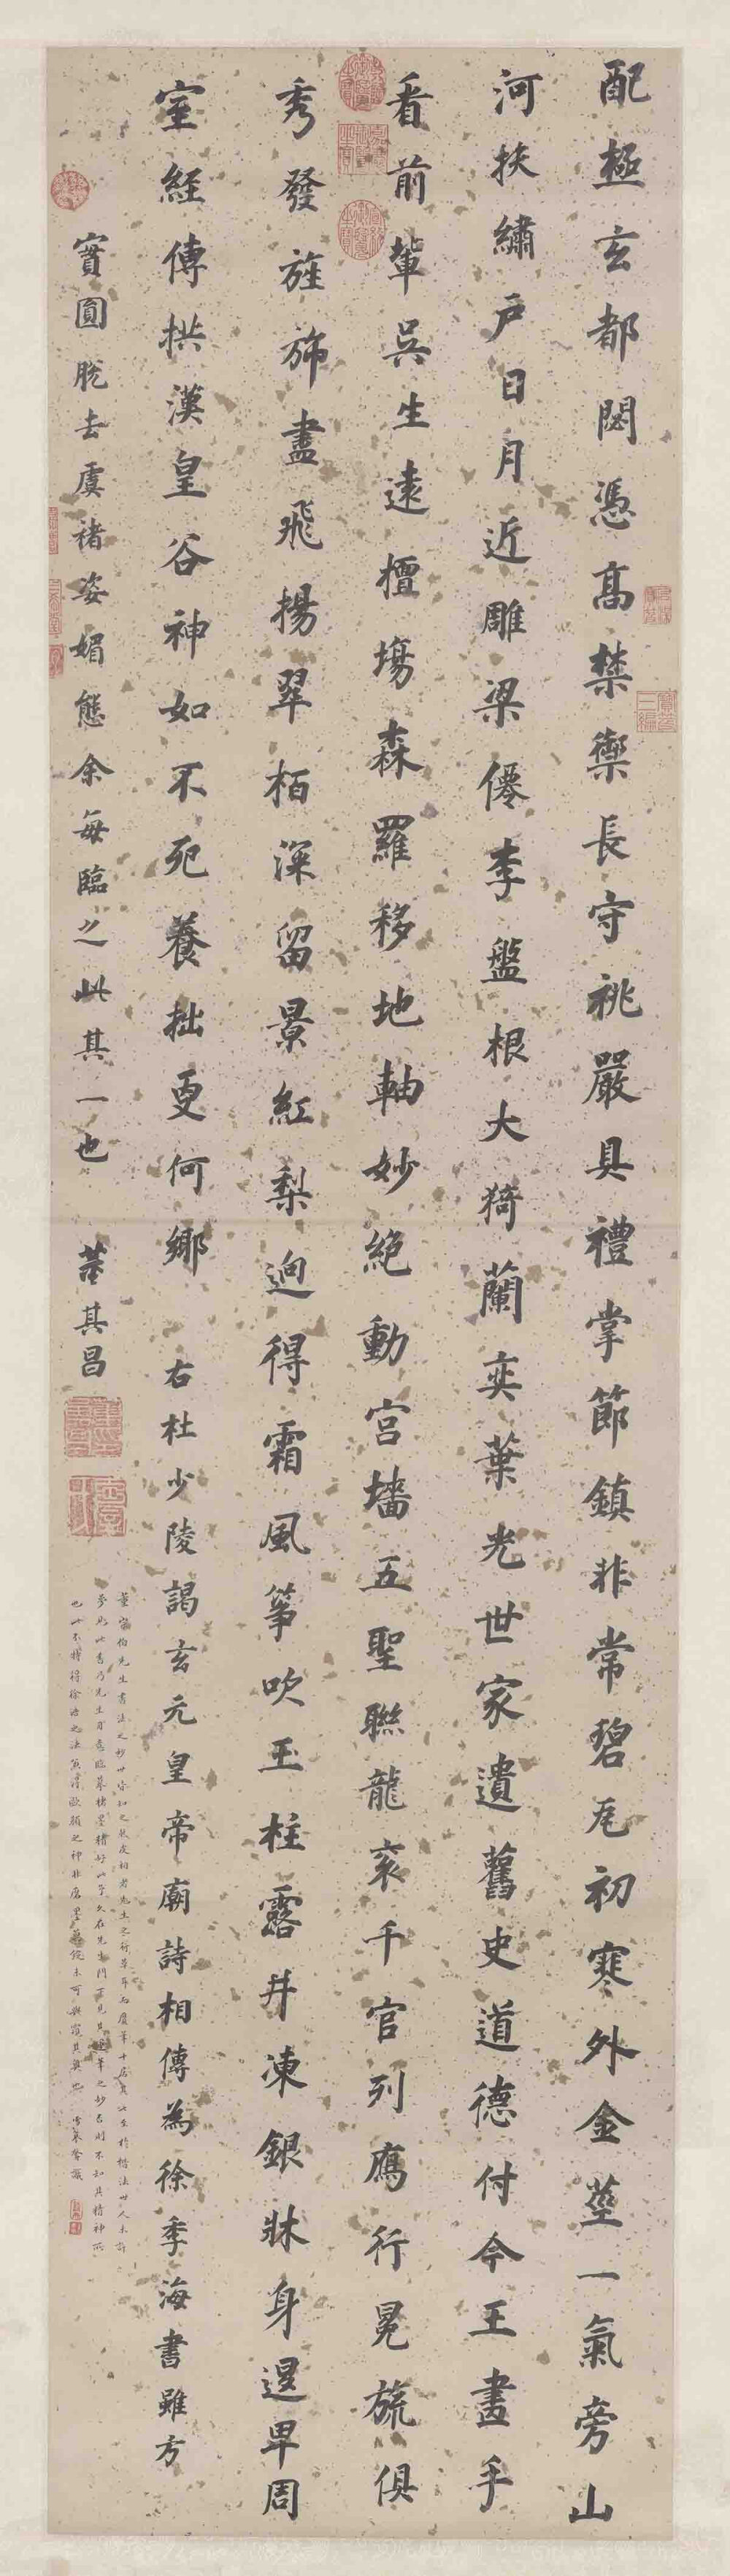 配極玄都閟憑高禁籞長守祧嚴具禮掌節鎮非常碧瓦初寒外金莖一氣旁山
河扶繡戶日月近雕梁僊李盤根大猗蘭奕葉光世家遺舊史道德付今王畫手
看前輩吳生遠擅場森羅移地軸妙絕動宮墻五聖聯龍衮千官列鴈行冕旒俱
秀發旌旆盡飛揚翠栢深留景紅梨迥得霜風箏吹玉柱露井凍銀牀身退卑周
室經傳拱漢皇谷神如不死養拙更何鄉 右杜少陵謁玄元皇帝廟詩相傳為徐季海書雖方
實圓脫去虞褚姿媚態余每臨之此其一也 董其昌
董宗伯先生書法之妙世皆知之